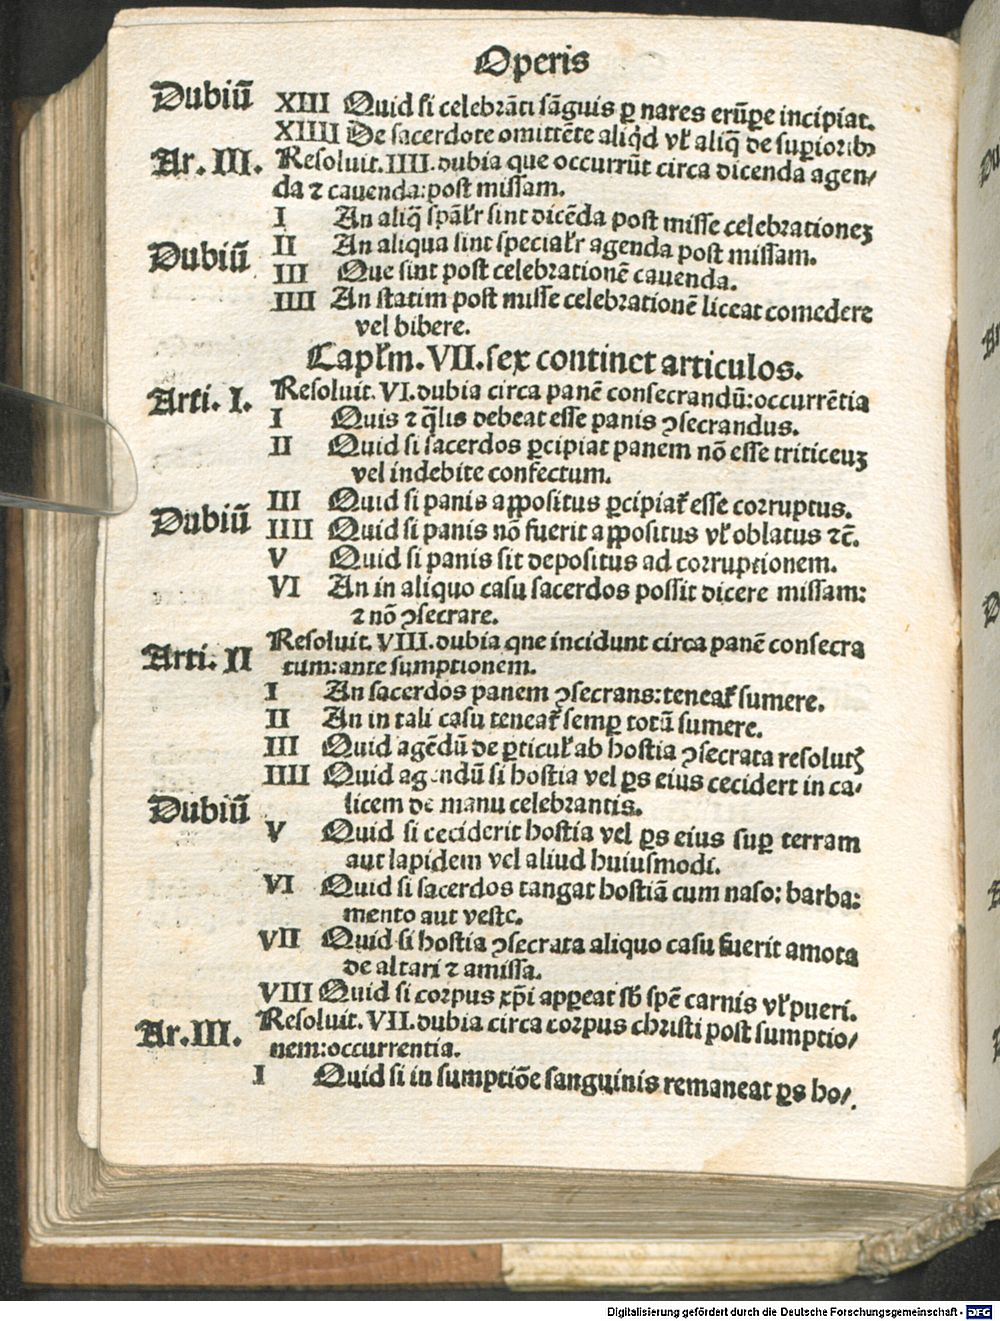 Operis
Dubiũ XIII Quid si celebrãti sãguis ꝑ nares erũpe incipiat.
XIIII De sacerdote omittẽte aliqd vł aliq̃ de suꝑioribꝰ
Ar. III. Resoluit. IIII. dubia que occurrũt circa dicenda agen/
da ⁊ cauenda: post missam.
I An aliq̃ spãłr sint dicẽda post misse celebrationeꝫ
Dubiũ II An aliqua sint speciałr agenda post missam.
III Que sint post celebrationẽ cauenda.
IIII An statim post misse celebrationẽ liceat comedere
vel bibere.
Capłm. VII. sex continet articulos.
Arti. I. Resoluit. VI. dubia circa panẽ consecrandũ: occurrẽtia
I Quis ⁊ q̃lis debeat esse panis ꝯsecrandus.
II Quid si sacerdos ꝑcipiat panem nõ esse triticeuꝫ
vel indebite confectum.
Dubiũ III Quid si panis aꝓpositus ꝑcipiaƭ esse corruptus.
IIII Quid si panis nõ fuerit aꝓpositus vł oblatus ⁊c̃.
V Quid si panis sit depositus ad corruptionem.
VI An in aliquo casu sacerdos possit dicere missam:
⁊ nõ ꝯsecrare.
Arti. II Resoluit. VIII. dubia qne incidunt circa panẽ consecra
tum: ante sumptionem.
I An sacerdos panem ꝯsecrans: teneaƭ sumere.
II An in tali casu teneaƭ semꝑ totũ sumere.
III Quid agẽdũ de ꝑticuł ab hostia ꝯsecrata resolutꝭ
IIII Quid agendũ si hostia vel ꝑs eius cecidert in ca/
Dubiũ licem de manu celebrantis.
V Quid si ceciderit hostia vel ꝑs eius suꝑ terram
aut lapidem vel aliud huiusmodi.
VI Quid si sacerdos tangat hostiã cum naso: barba:
mento aut veste.
VII Quid si hostia ꝯsecrata aliquo casu fuerit amota
de altari ⁊ amissa.
VIII Quid si corpus xp̃i apꝑeat sb̃ spẽ carnis vł pueri.
Ar. III. Resoluit. VII. dubia circa corpus christi post sumptio/
nem: occurrentia.
I Quid si in sumptiõe sanguinis remaneat ꝑs ho/.
Digitalisierung gefördert durch die Deutsche Forschungsgemeinschaft - DFG